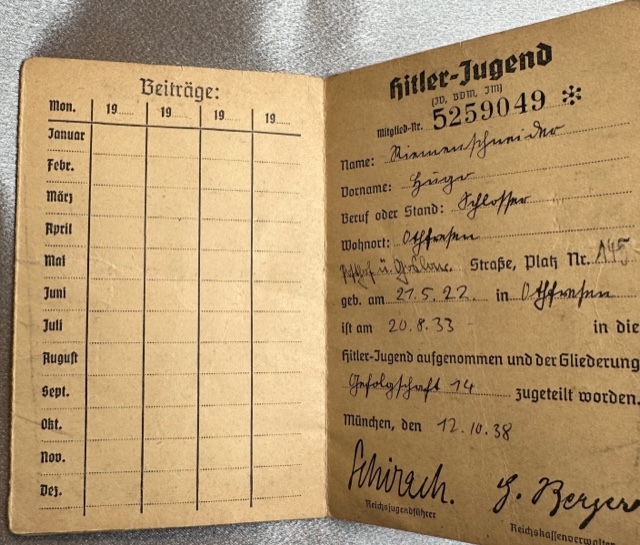 Beiträge:
Mon. 19 19 19 19
Januar
Febr.
März
April
Mai
Juni
Juli
August
Sept.
Okt.
Nov.
Dez.
Hitler-Jugend
(JV, BDM, JM)
Mitglied-Nr. 5259049 *
Name: Riemenschneider
Vorname: Hugo
Beruf oder Stand: Schlosser
Wohnort: Othfresen
Straße, Platz Nr.
geb. am 21.5.22. in Othfresen
ist am 20.8.33 in die
Hitler-Jugend aufgenommen und der Gliederung
Gefolgschaft 14 zugeteilt worden.
München, den 12.10.38
Schirach. G. Berger
Reichsjugendführer Reichskassenverwalter